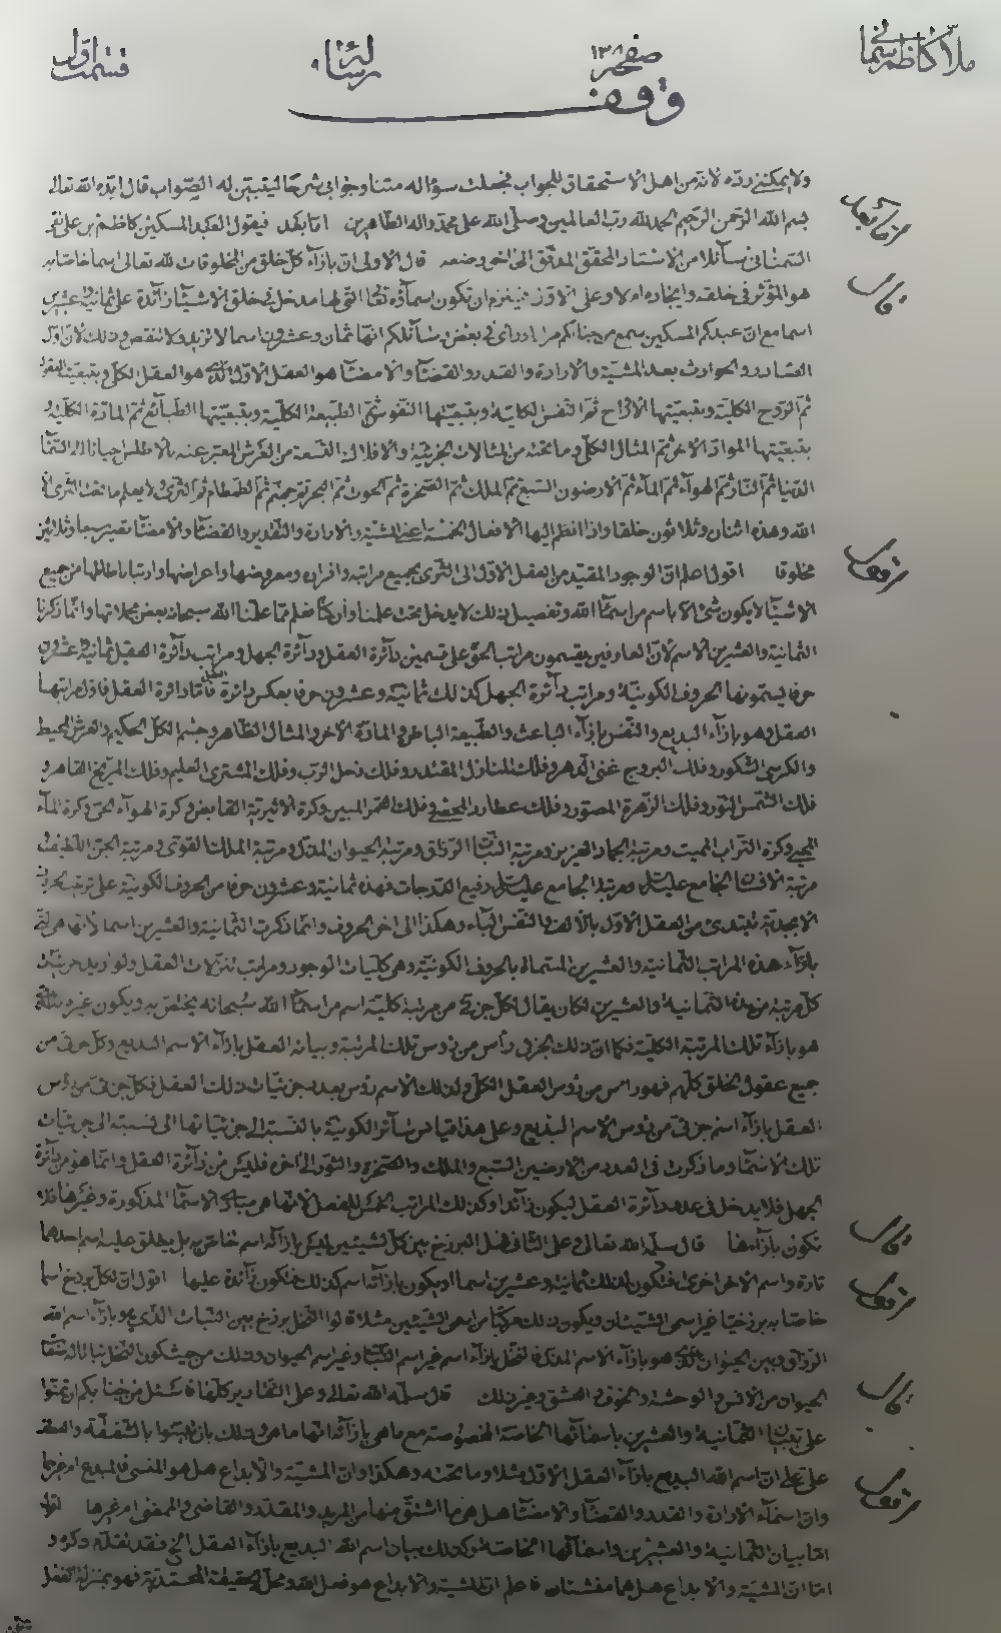 ملا كاظم سمنانی
صفحه ١٣٨
رسالة
قسمت اول
وقف
ولا يمكننى رده لانه من اهل الاستحقاق للجواب فجعلت سؤاله متنا وجوابى شرحا ليتبين له الصواب قال ايده الله تعالى
بسم الله الرحمن الرحيم الحمد لله رب العالمين وصلى الله على محمد واله الطاهرين اما بعد فيقول العبد المسكين كاظم بن على نقى
السمنانى مسآئلا من الاستاد المحقق المدقق الى اخر وضعه قال الاولى ان بازآء كل خلق من المخلوقات لله تعالى اسما خاصا به
هو المؤثر فى خلقه وايجاده ام لا وعلى الاول فيلزم ان تكون اسمآؤه تعالى التى لها مدخل فى خلق الاشيآء زآئدة على ثمانية وعشرين
اسما مع ان عبدكم المسكين سمع من جنابكم مرارا ورأى فى بعض رسآئلكم انها ثمان وعشرون اسما لا تزيد ولا تنقص وذلك لان اول
الصادر والحوادث بعد المشية والارادة والقدر والقضآء والامضآء هو العقل الاول الذى هو العقل الكلى وبتبعيته العقول
ثم الروح الكلية وبتبعيتها الارواح ثم النفس الكلية وبتبعيتها النفوس ثم الطبيعة الكلية وبتبعيتها الطبآئع ثم المادة الكلية و
بتبعيتها المواد الاخر ثم المثال الكلى وما تحته من المثالات الجزئية والافلاك التسعة من العرش المعبر عنه بالاطلس الى السمآء
الدنيا ثم النار ثم الهوآء ثم المآء ثم الارضون السبع ثم الملك ثم الصخرة ثم الثور ثم الحوت ثم البحر ثم جهنم ثم الطمطام ثم الثرى ولا يعلم ما تحت الثرى الا
الله وهذه اثنان وثلاثون خلقا واذا انظم اليها الافعال الخمسة اعنى المشية والارادة والتقدير والقضآء والامضآء تصير سبعا وثلاثين
مخلوقا اقول اعلم ان الوجود المقيد من العقل الاول الى الثرى بجميع مراتبه وافراده ومعروضها واعراضها وارتباطاتها من جميع
الاشيآء لا يكون شئ الا باسم من اسمآء الله وتفصيل ذلك لا يدخل تحت علمنا وان كنا نعلم مما علمنا الله سبحانه بعض مجملاتها وانما ذكرنا
الثمانية والعشرين الاسم لان العارفين يقسمون مراتب الحق على قسمين دآئرة العقل ودآئرة الجهل ومراتب دآئرة العقل ثمانية وعشرون
حرفا يسمونها الحروف الكونية ومراتب دآئرة الجهل كذلك ثمانية وعشرون حرفا بعكس دآئرة العقل فاما دآئرة العقل فاول مراتبها
العقل وهو بازآء البديع والنفس بازآء الباعث والطبيعة الباطن والمادة الاخر والمثال الظاهر وجسم الكل الحكيم والعرش المحيط
والكرسى الشكور وفلك البروج غنى الدهر وفلك المنازل المقتدر وفلك زحل الرب وفلك المشترى العليم وفلك المريخ القاهر و
فلك الشمس النور وفلك الزهرة المصور وفلك عطارد المحصى وفلك القمر المبين وكرة الاثيرية القابض وكرة الهوآء الحى وكرة المآء
المحيى وكرة التراب المميت ومرتبة الجماد العزيز ومرتبة النبات الرزاق ومرتبة الحيوان المذل ومرتبة الملك القوى ومرتبة الجن اللطيف
مرتبة الانسان الجامع ومرتبة الجامع عليه السلم رفيع الدرجات فهذه ثمانية وعشرون حرفا من الحروف الكونية على ترتيب الحروف
الابجدية تبتدئ من العقل الاول بالالف والنفس البآء وهكذا الى اخر الحروف وانما ذكرت الثمانية والعشرين اسما لانها هى التى
بازآء هذه المراتب الثمانية والعشرين المسماة بالحروف الكونية وهى كليات الوجود ومراتب تنزلات العقل ولو اريد جزئيات
كل مرتبة من هذه الثمانية والعشرين لكان يقال لكل جزئى من مرتبة كلية اسم من اسمآء الله سبحانه يختص به ويكون غيره مثلا
هو بازآء تلك المرتبة الكلية فكما ان ذلك الجزئى رأس من رؤس تلك المرتبة وبيانه العقل بازآء الاسم البديع وكل جزئى من
جميع عقول الخلق كلهم فهو رأس من رؤس العقل الكلى ولذلك الاسم رؤس بعدد جزئيات ذلك العقل فكل جزئى من رؤس
العقل بازآء اسم جزئى من رؤس الاسم البديع وعلى هذا قياس سآئر الكونية بالنسبة الى جزئياتها الى نسبته الى جزئيات
تلك الاسمآء وما ذكرت فى العدد من الارضين السبع والملك والصخرة والثور الى اخره فليس من دآئرة العقل وانما هو من دآئرة
الجهل فلا يدخل فى عدد دآئرة العقل ليكون زآئدا وكذلك المراتب الخمس للفعل لانها هى مبادى الاسمآء المذكورة وغيرها فلا
تكون بازآءها قال سلمه الله تعالى وعلى الثانى فهل البرزخ بين كل شيئين ليس بازآئه اسم خاص به بل يطلق عليه اسم احدهما
تارة واسم الاخر اخرى فتكون لذلك ثمانية وعشرين اسما او يكون بازآئه اسم كذلك فتكون زآئدة عليها اقول ان لكل برزخ اسما
خاصا به برزخيا غير اسمى الشيئين ويكون ذلك مركبا من اسمى الشيئين مثلا قالوا النخل برزخ بين النبات الذى هو بازآء اسم الله
الرزاق وبين الحيوان الذى هو بازآء الاسم المذل فالنخل بازآء اسم غير اسم النبات وغير اسم الحيوان وذلك من حيث كون النخل نباتا له
الحيوان من الانس والوحشة والخوف والعشق وغير ذلك قال سلمه الله تعالى وعلى التقادير كلها فاسئل من جنابكم ان تمنوا
على ببيان الثمانية والعشرين باسمآئها الخاصة المخصوصة مع ما هى بازآئه انها ما هى وذلك بان تبينوا بالشفقة والعطف
على ان اسم الله البديع بازآء العقل الاول مثلا وما تحته وهكذا وان المشية والابداع هل هو المنشئ والمبدع ام غيرهما
وان اسمآء الارادة والقدر والقضآء والامضآء هل هى ما اشتق منها من المريد والمقدر والقاضى والممضى ام غيرها اقول
اما بيان الثمانية والعشرين واسمآئها الخاصة وكذلك بيان اسم الله البديع بازآء العقل الخ فقد تقدم ذكره و
اما ان المشية والابداع هل هما مفشتان فاعلم ان المشية والابداع هو فعل الله ومحله الحقيقة المحمدية فهو بمنزلة الفعل
اما بعد
قال
اقول
قال
اقول
قال
اقول